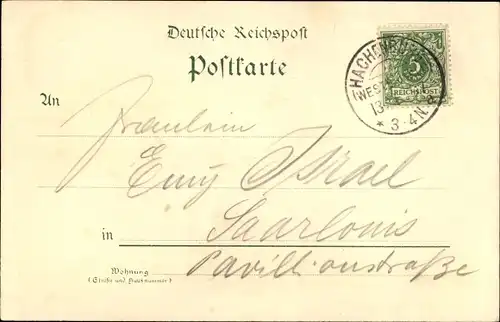 Deutsche Reichspost
Postkarte
HACHENBURG
(WES
13
* 3-4 N. *
5
REICHSPOST
An
Fräulein
Emy Israel
in Saarlouis
Pavillionstraße
Wohnung
(Straße und Hausnummer)